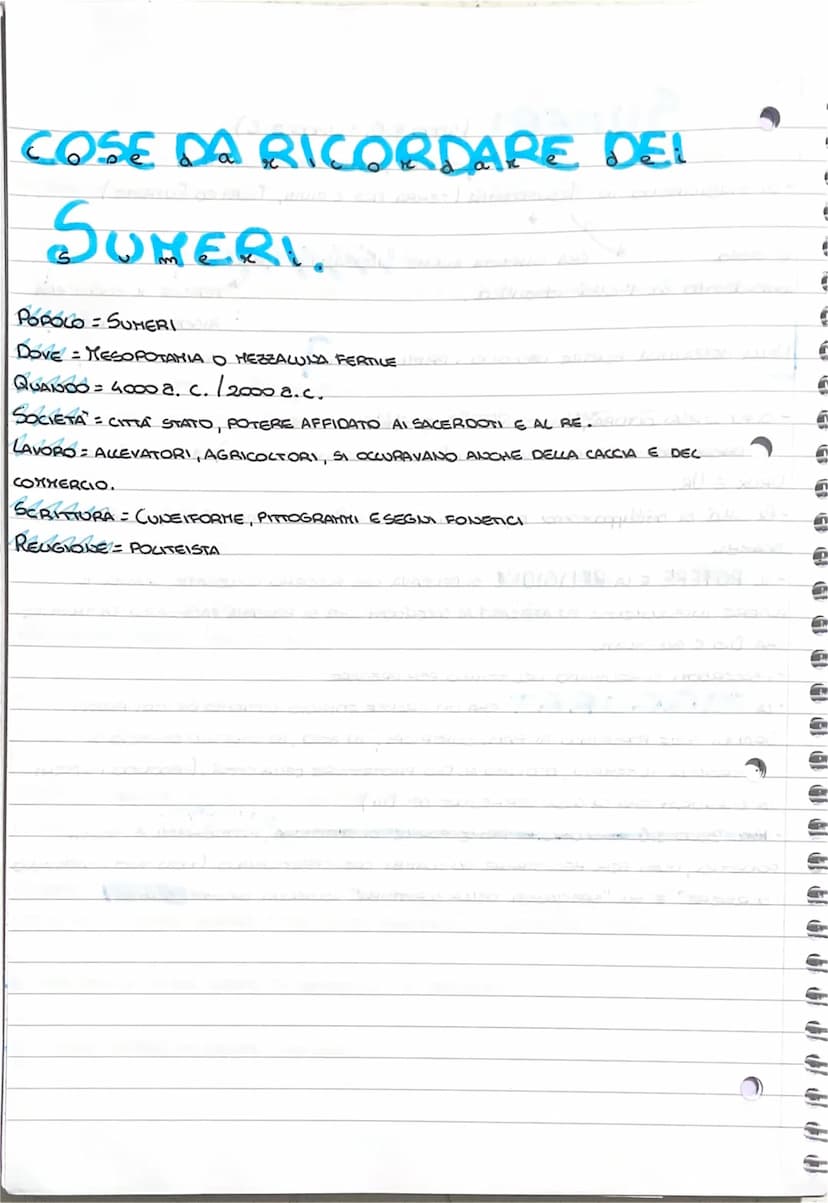 COSE DA RICORDARE DEI
SUMERI.
POPOLO = SUMERI
DOVE = MESOPOTAMIA O MEZZALUNA FERTILE
QUANDO = 4000 a. C. / 2000 a. C.
SOCIETÀ = CITTÀ STATO, POTERE AFFIDATO AI SACERDOTI E AL RE.
LAVORO = ALLEVATORI, AGRICOLTORI, SI OCCUPAVANO ANCHE DELLA CACCIA E DEL
COMMERCIO.
SCRITTURA = CUNEIFORME, PITTOGRAMMI E SEGNI FONETICI
RELIGIONE = POLITEISTA